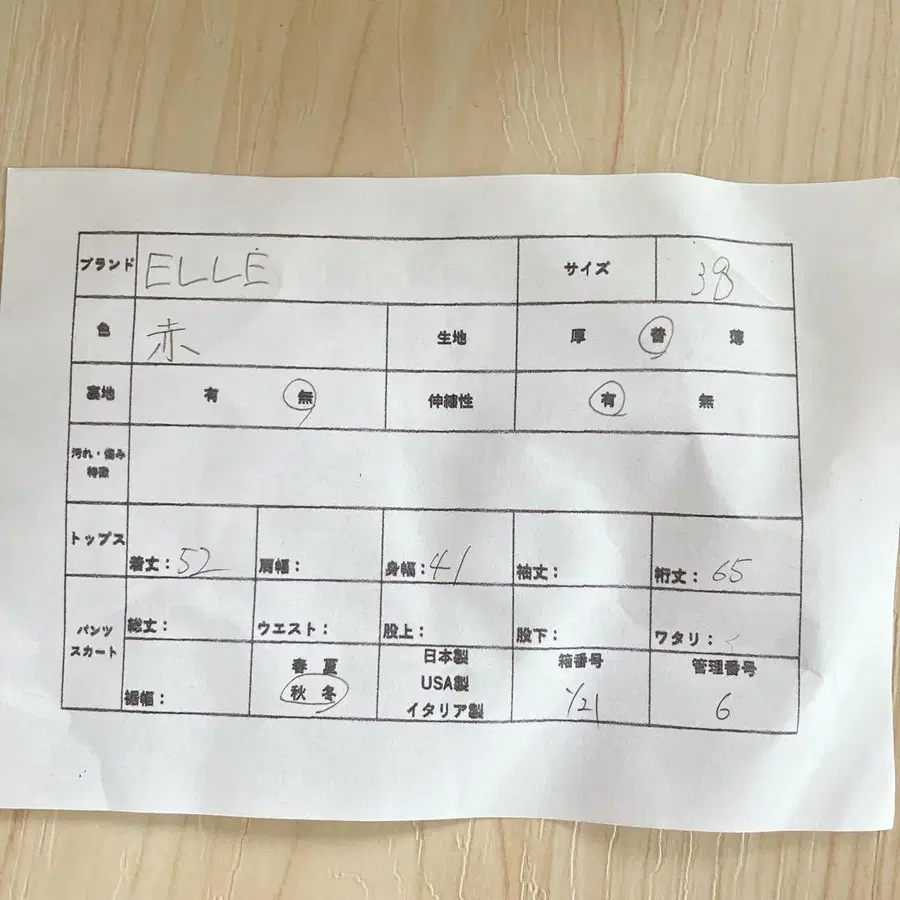 ブランド ELLE サイズ 38
色 赤 生地 厚 普 薄
裏地 有 無 伸縮性 有 無
汚れ・傷み
特徴
トップス 着丈：52 肩幅： 身幅：41 袖丈： 裄丈：65
パンツ
スカート
総丈： ウエスト： 股上： 股下： ワタリ：
裾幅：
春 夏
秋 冬
日本製
USA製
イタリア製
箱番号
1/21
管理番号
6